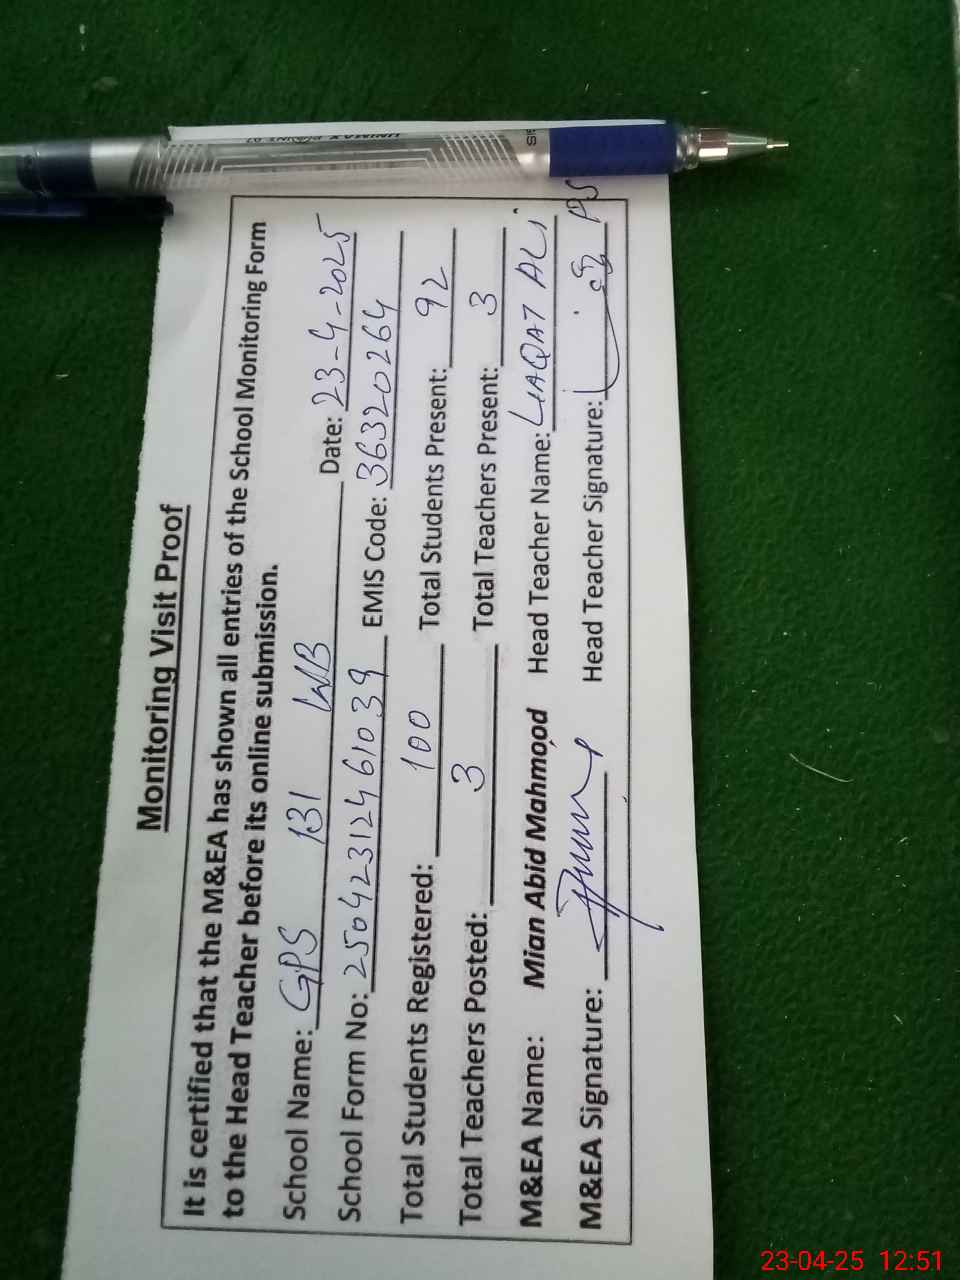 Monitoring Visit Proof
It is certified that the M&EA has shown all entries of the School Monitoring Form
to the Head Teacher before its online submission.
School Name: GPS 131 WB Date: 23-4-2025
School Form No: 25042312461039 EMIS Code: 36320264
Total Students Registered: 100 Total Students Present: 92
Total Teachers Posted: 3 Total Teachers Present: 3
M&EA Name: Mian Abid Mahmood Head Teacher Name: LIAQAT ALI
M&EA Signature: Head Teacher Signature:
23-04-25 12:51